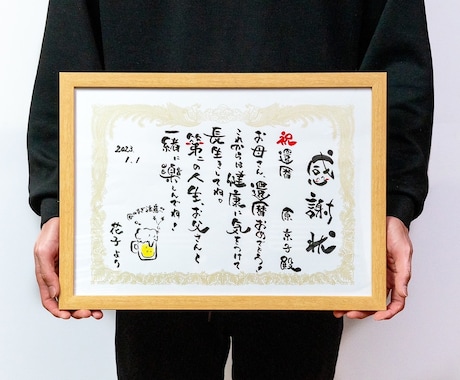 感謝状
祝 還暦 原 京子殿
お母さん、還暦おめでとう!
これからは健康に気をつけて
長生きしてね。
第二の人生、お父さんと
一緒に楽しんでね!
2023.
1.1
のみすぎ注意
花子より